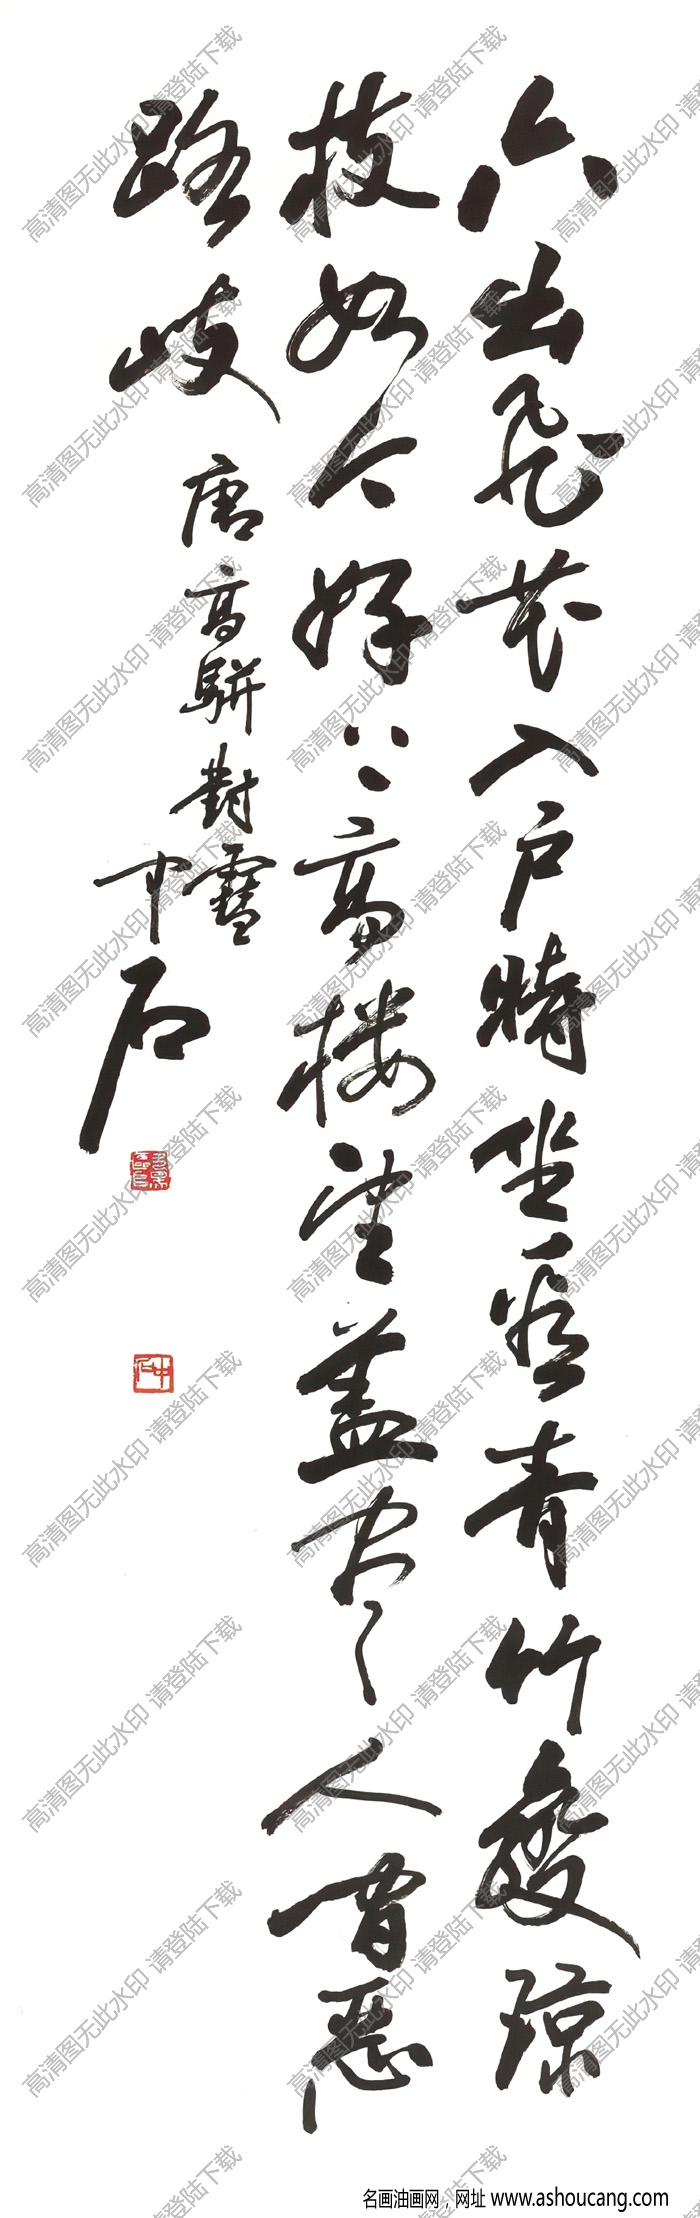 六出飛花入户時坐看青竹變琼
枝如今好上高楼望蓋尽人间恶
路岐
唐高駢對雪
中石
中石
高清图无此水印 请登陆下载
名画油画网，网址 www.ashoucang.com